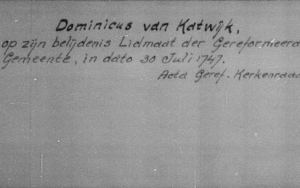 Dominicus van Katwijk,
op zijn belijdenis Lidmaat der Gereformeerd
Gemeente, in dato 30 Juli 1747.
Acta Geref. Kerkenraad